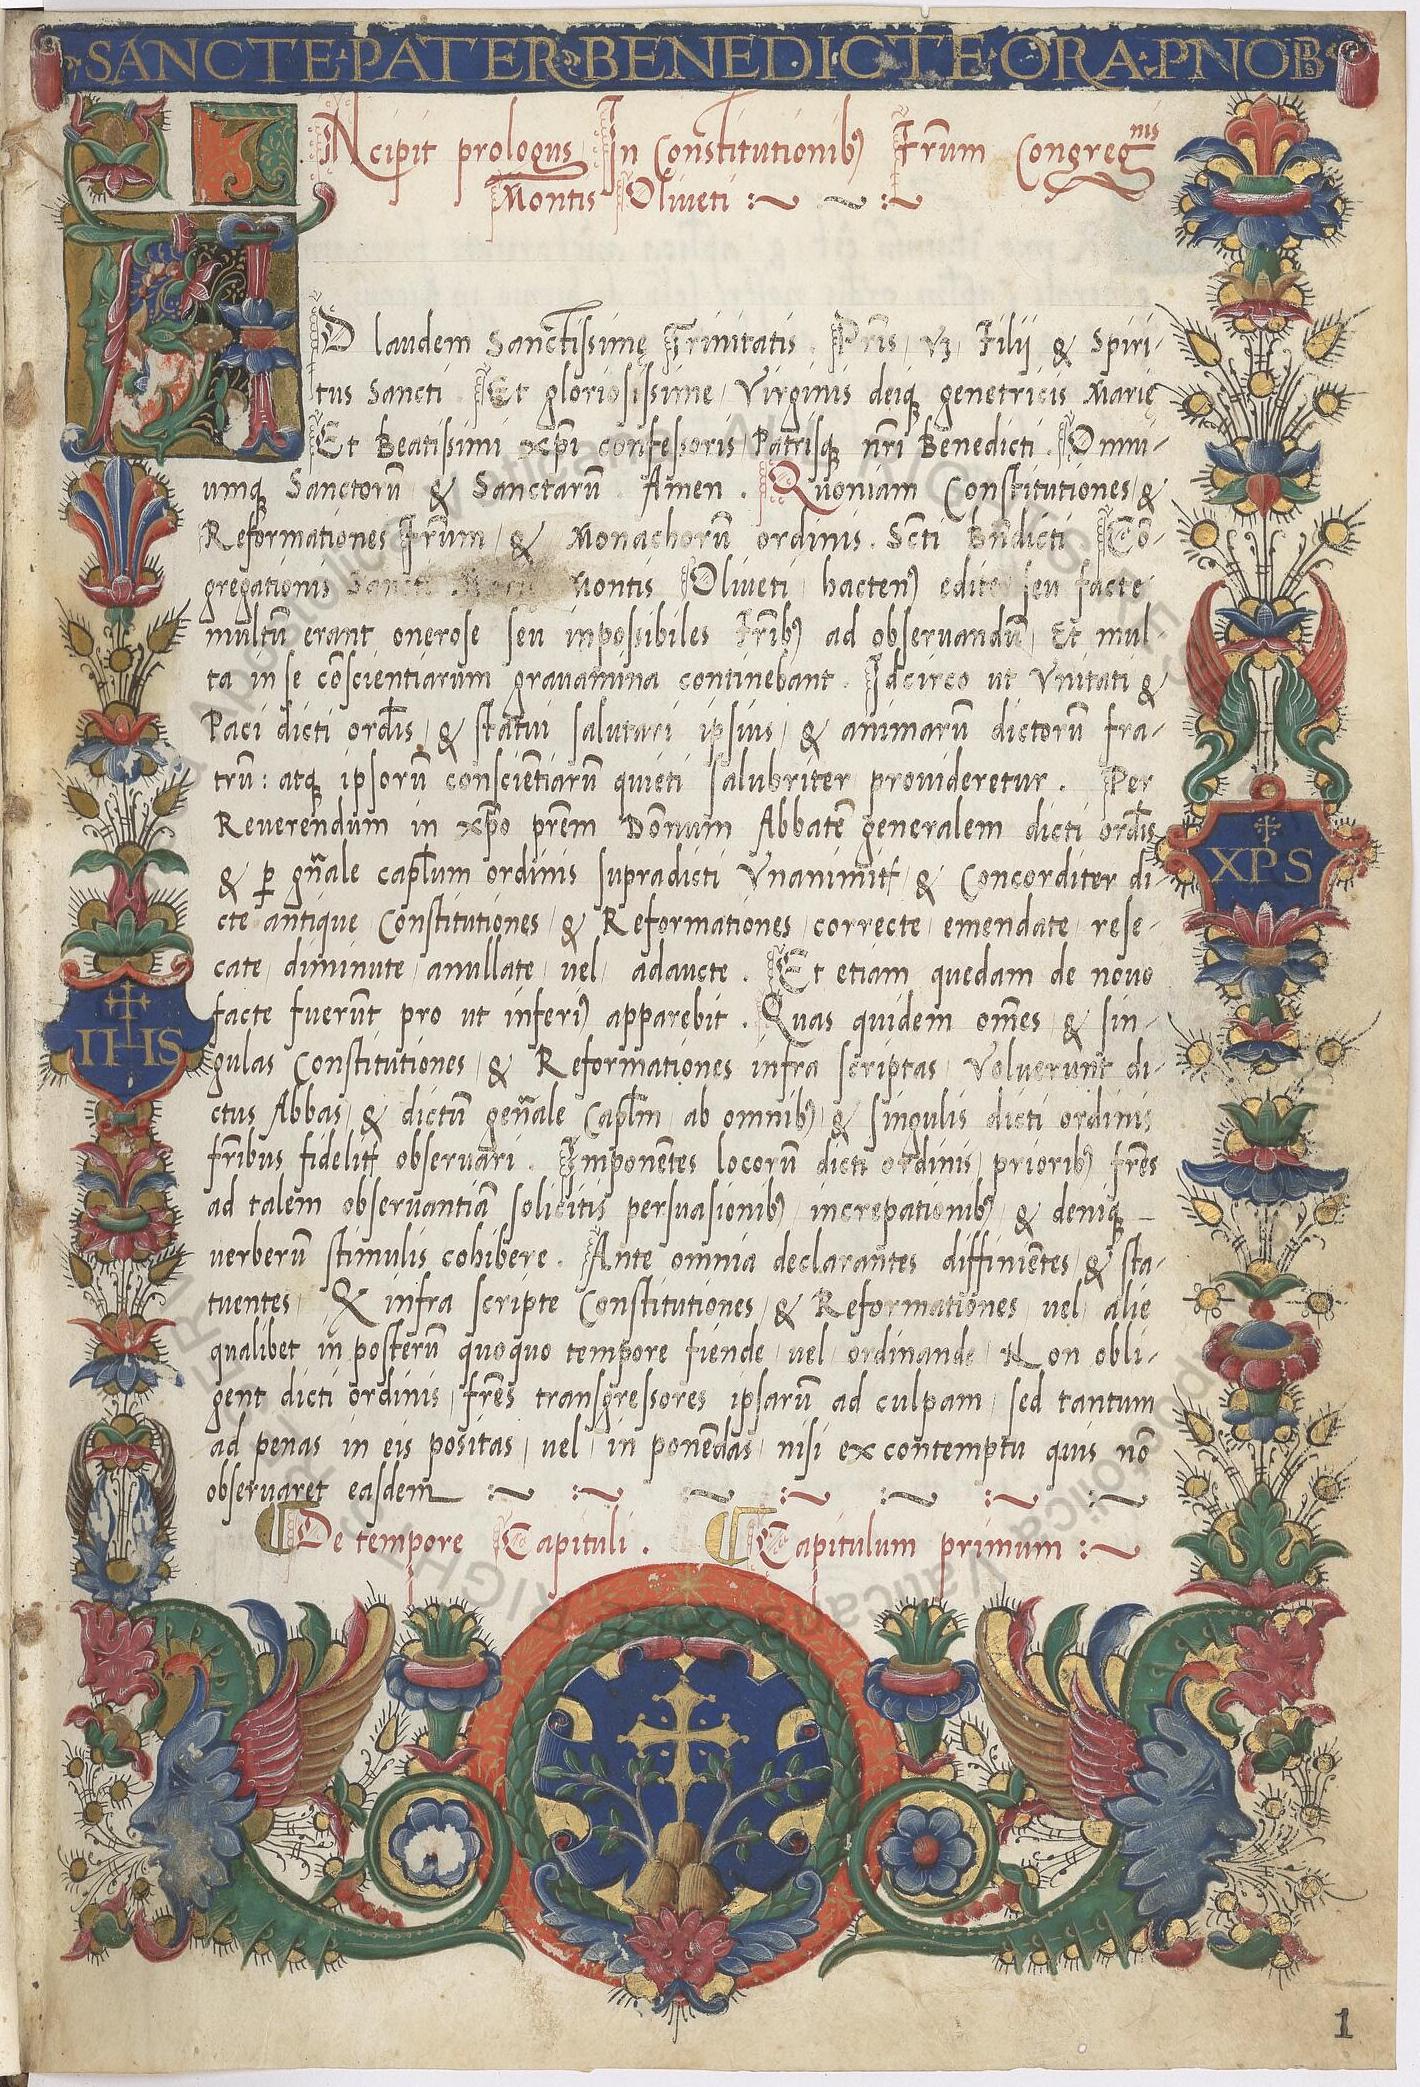 SANCTE·PATER·BENEDICTE·ORA·P·NOBIS
INcipit prologus In Constitutionibꝰ Fr̄um Congregnis
Montis Oliueti :~ ~ :~
AD laudem Sanctissimę Trinitatis. Pr̄is, vꝫ, Filij & Spiri-
tus Sancti. Et gloriosissime, Virginis deiqꝫ genetricis Marię
Et Beatissimi xp̄i confessoris Patrisqꝫ nr̄i Benedicti. Omni-
umqꝫ Sanctorū & Sanctarū Amen. Quoniam Constitutiones, &
Reformationes Fr̄um, & Monachorū ordinis. Sc̄ti Bn̄dicti Cō-
gregationis Sancte Marie Montis Oliueti, hactenꝰ edite, seu facte
multū erant, onerose seu inpossibiles Fr̄ibꝰ ad obseruandū, Et mul-
ta in se cōscientiarum grauamina continebant. Idcirco ut Vnitati &
Paci dicti ord̄is, & statui salutari ipsius, & animarū dictorū fra-
trū: atqꝫ ipsorū consciētiarū quieti salubriter prouideretur. Per
Reuerendum in xp̄o pr̄em Dōnum Abbatē generalem dicti ord̄is
& ꝑ gn̄ale cap̄lum ordinis supradicti Vnanimitꝭ & Concorditer di-
cte antique Constitutiones, & Reformationes, correcte, emendate, rese-
cate, diminute, anullate, uel, adaucte. Et etiam quedam de nouo
facte fuerūt pro ut inferiꝰ apparebit. Quas quidem om̄es & sin-
gulas Constitutiones, & Reformationes infra scriptas, Voluerunt di-
ctus Abbas, & dictū gen̄ale Cap̄lm, ab omnibꝰ, & singulis dicti ordinis
fr̄ibus fidelitꝭ obseruari. Imponētes locorū dicti ordinis, prioribꝰ fr̄es
ad talem obseruantiā solicitis persuasionibꝰ, increpationibꝰ, & deniqꝫ
uerberū stimulis cohibere. Ante omnia declarantes diffiniētes, & sta-
tuentes, Q infra scripte Constitutiones, & Reformationes, uel, alie
qualibet in posterū quoquo tempore fiende, uel, ordinande, Non obli-
gent dicti ordinis, fr̄es transgressores ipsarū ad culpam, sed tantum
ad penas in eis positas, uel, in ponēdas, nisi ex contemptu quis nō
obseruaret easdem :~ :~ :~ :~ :~ :~ :~
De tempore Capituli. Capitulum primum :~
IHS
XPS
1